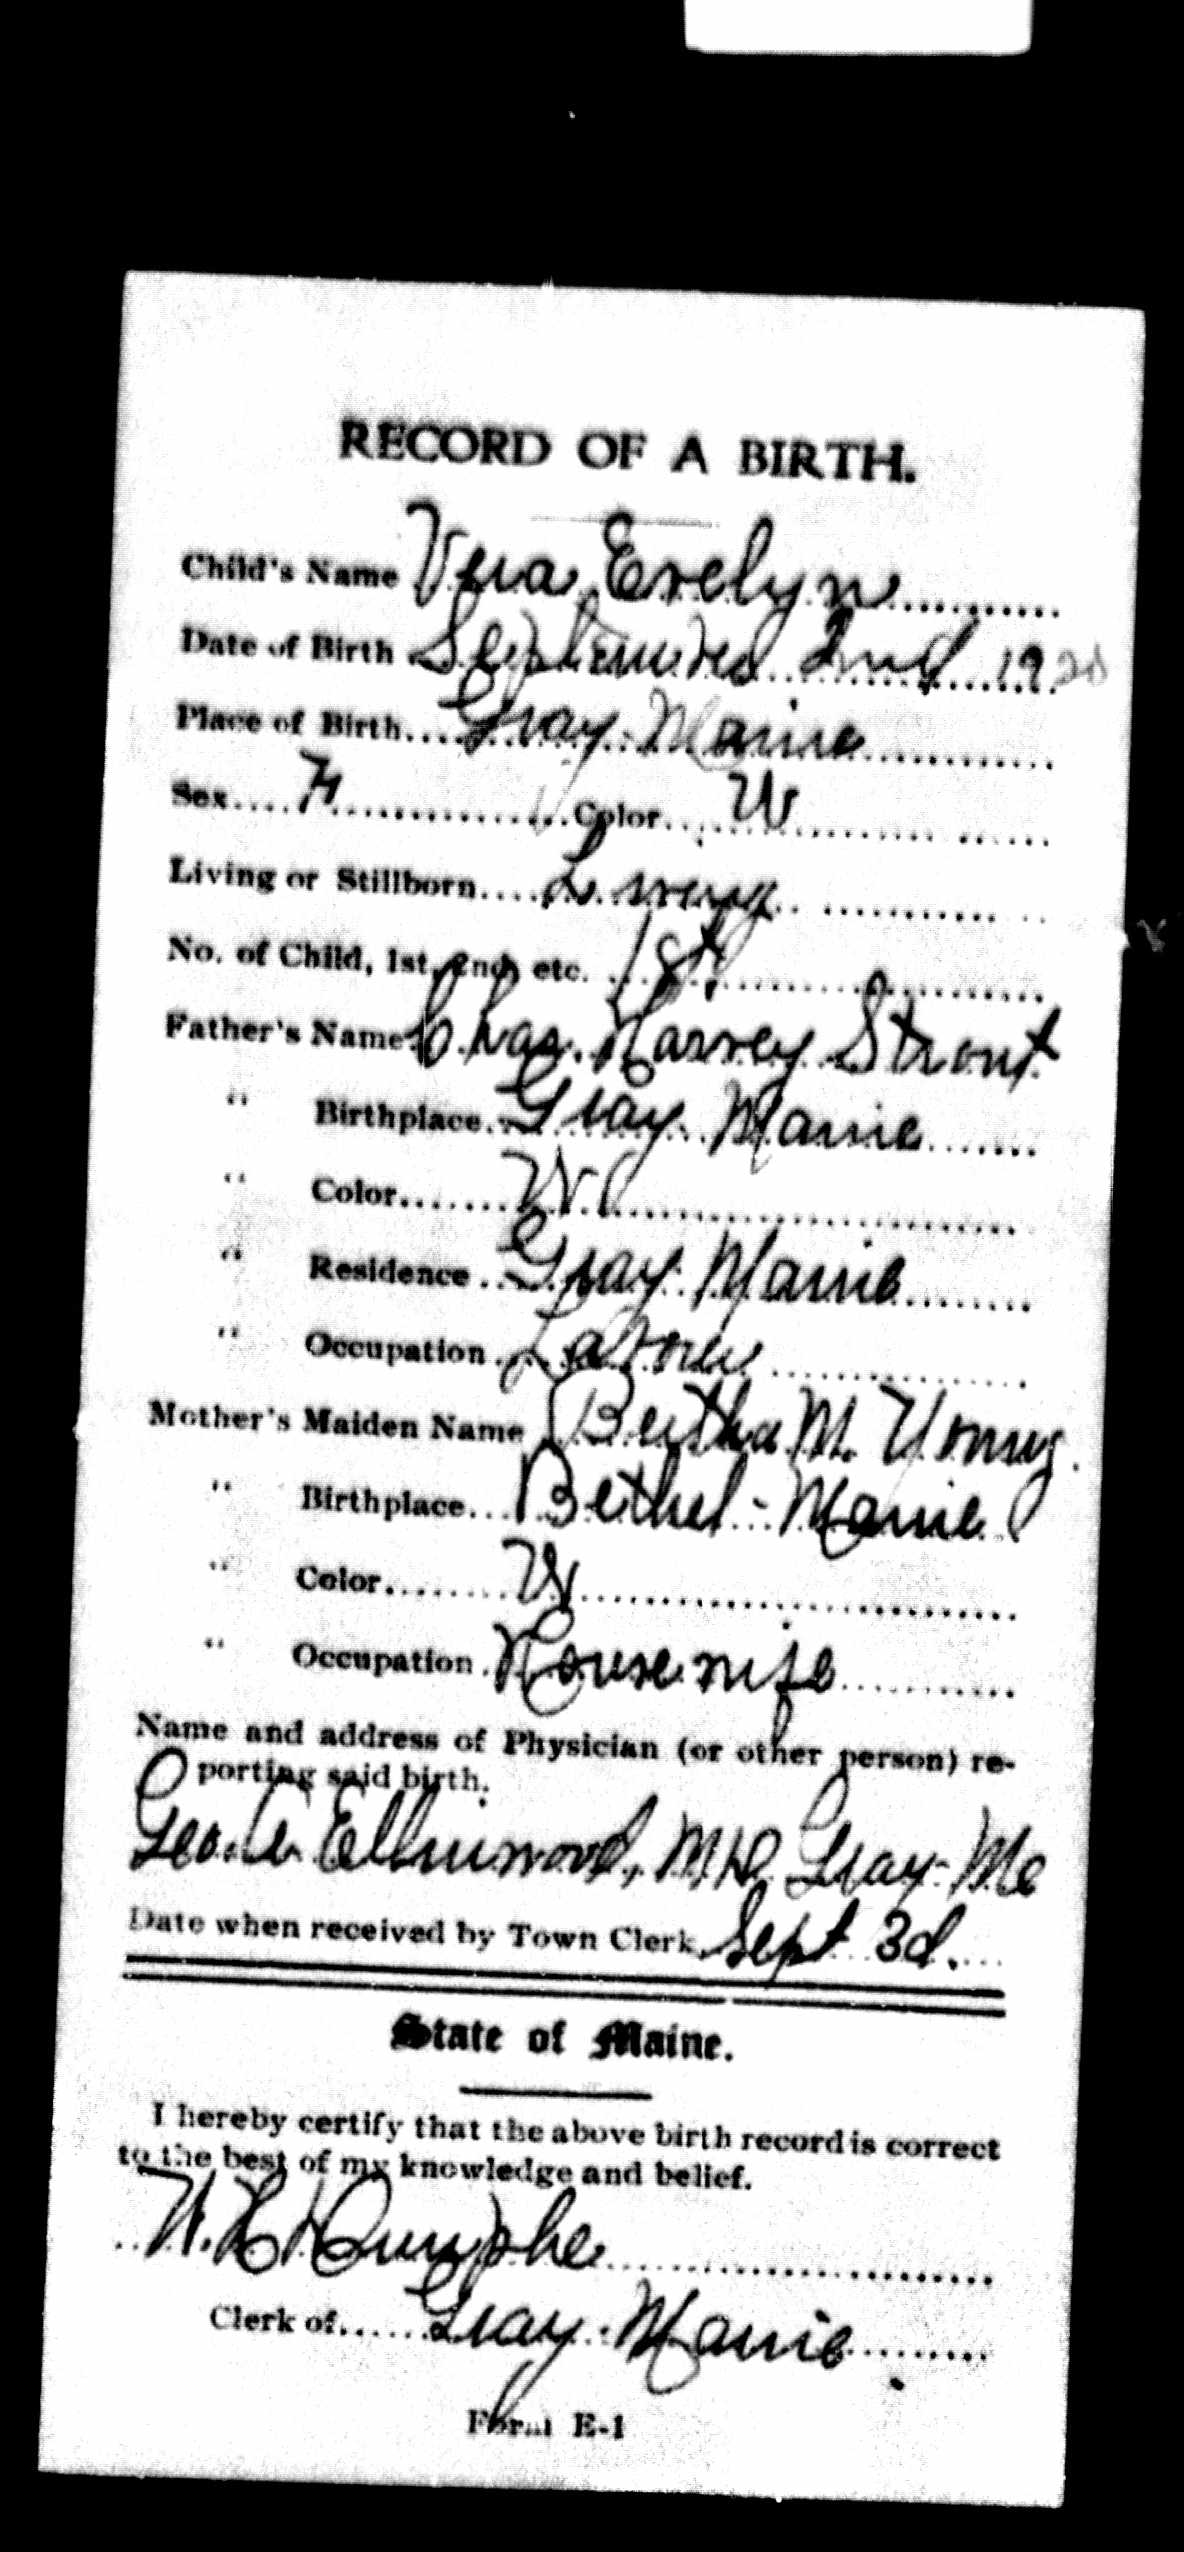 RECORD OF A BIRTH.
Child's Name Vera Evelyn
Date of Birth September 2nd 1920
Place of Birth Gray Maine
Sex F Color W
Living or Stillborn Living
No. of Child, 1st, 2nd, etc. 1st
Father's Name Chas. Harvey Strout
" Birthplace Gray Maine
" Color W
" Residence Gray Maine
" Occupation Laborer
Mother's Maiden Name Bertha M. Young
" Birthplace Bethel - Maine
" Color W
" Occupation Housewife
Name and address of Physician (or other person) re-
porting said birth.
Geo. Ellinwood, M.D. Gray - Me
Date when received by Town Clerk Sept 3d.
State of Maine.
I hereby certify that the above birth record is correct
to the best of my knowledge and belief.
Clerk of Gray - Maine
Form E-1